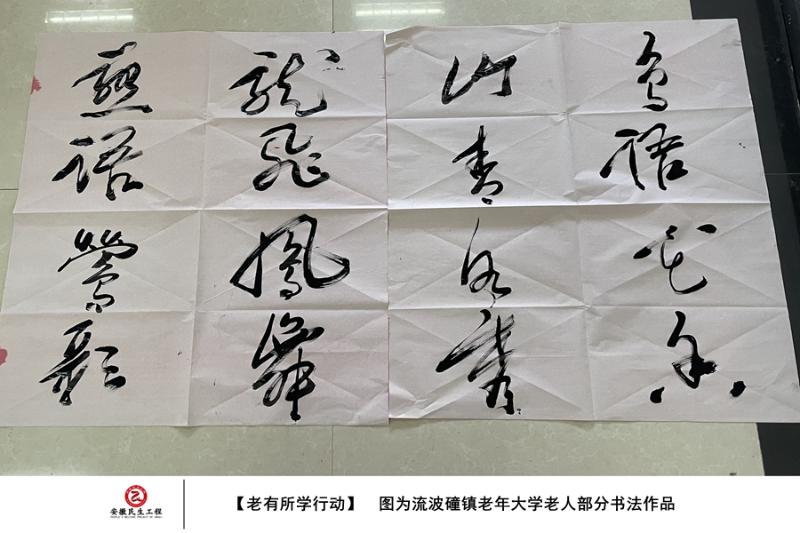 鳥語花香
山青水秀
龍飛鳳舞
燕語鶯歌
安徽民生工程
【老有所学行动】 图为流波䃥镇老年大学老人部分书法作品